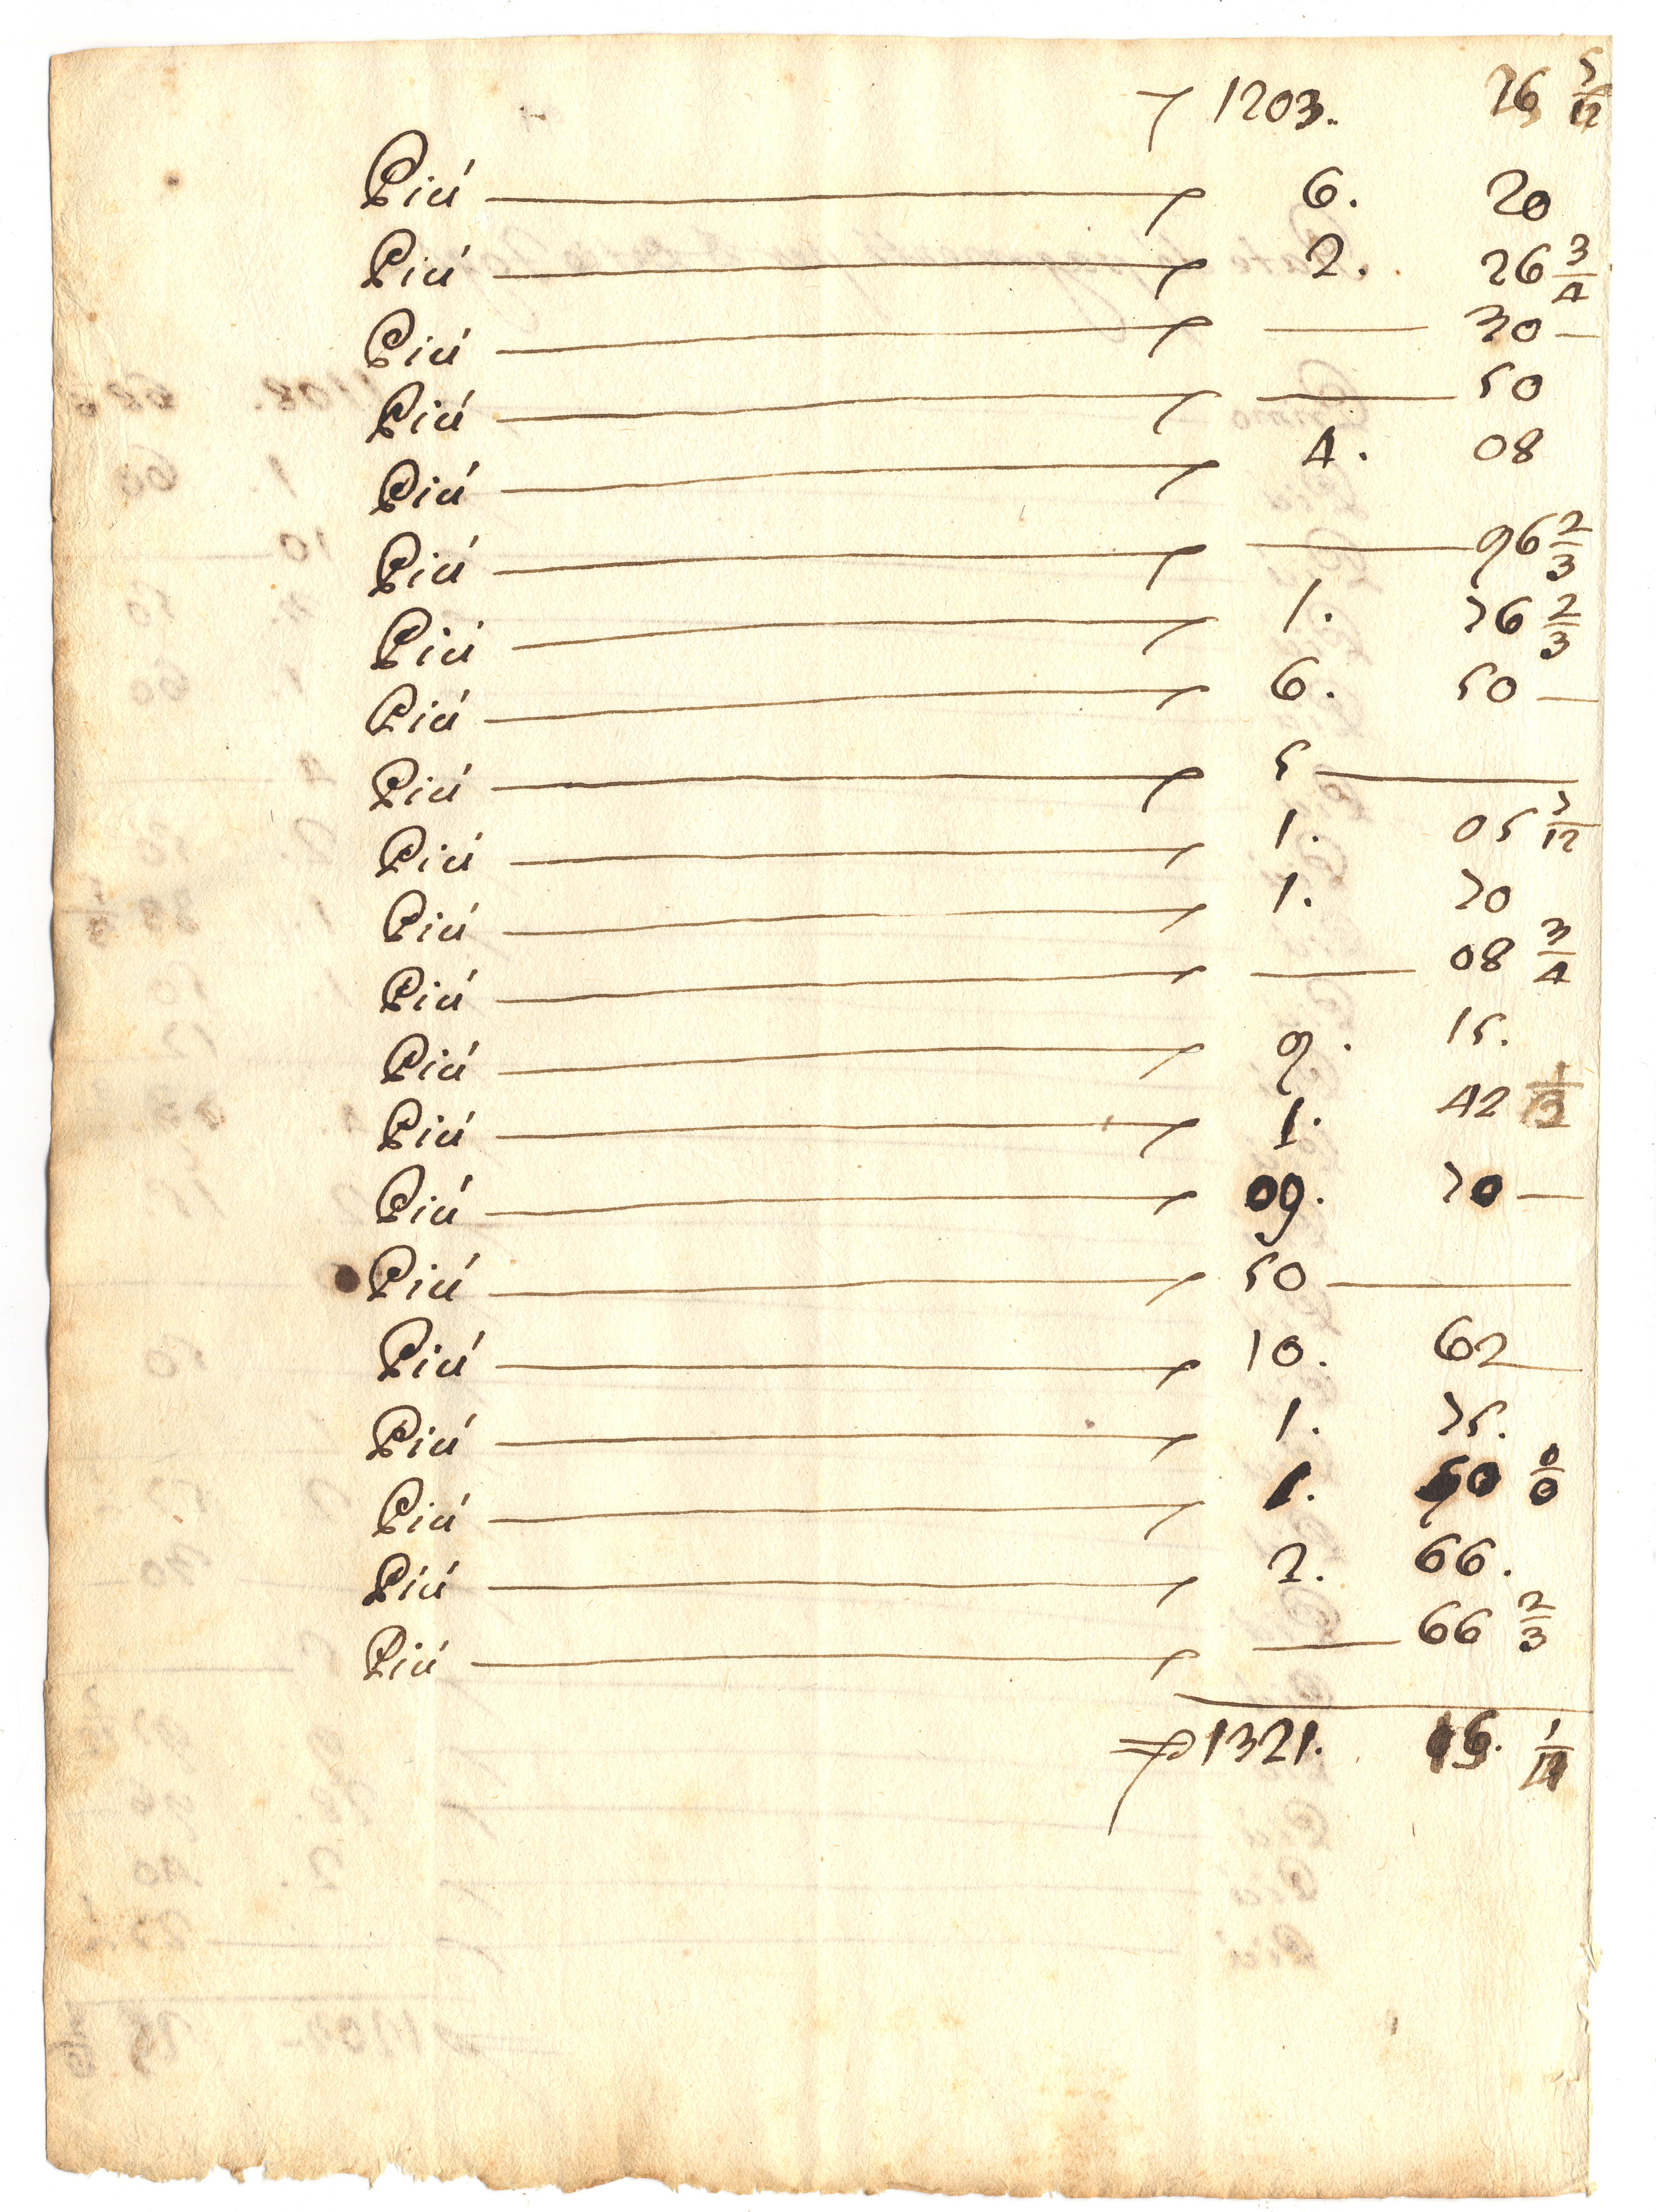 1203. 26 5/12
Più 6. 20
Più 2. 26 3/4
Più — 30 —
Più — 50
Più 4. 08
Più — 96 2/3
Più 1. 76 2/3
Più 6. 50 —
Più 5 —
Più 1. 05 7/12
Più 1. 70
Più — 08 3/4
Più 9. 15.
Più 1. 42 1/3
Più 09. 70 —
Più 50 —
Più 10. 62
Più 1. 75.
Più 1. 90 0/0
Più 2. 66.
Più — 66 2/3
1321.